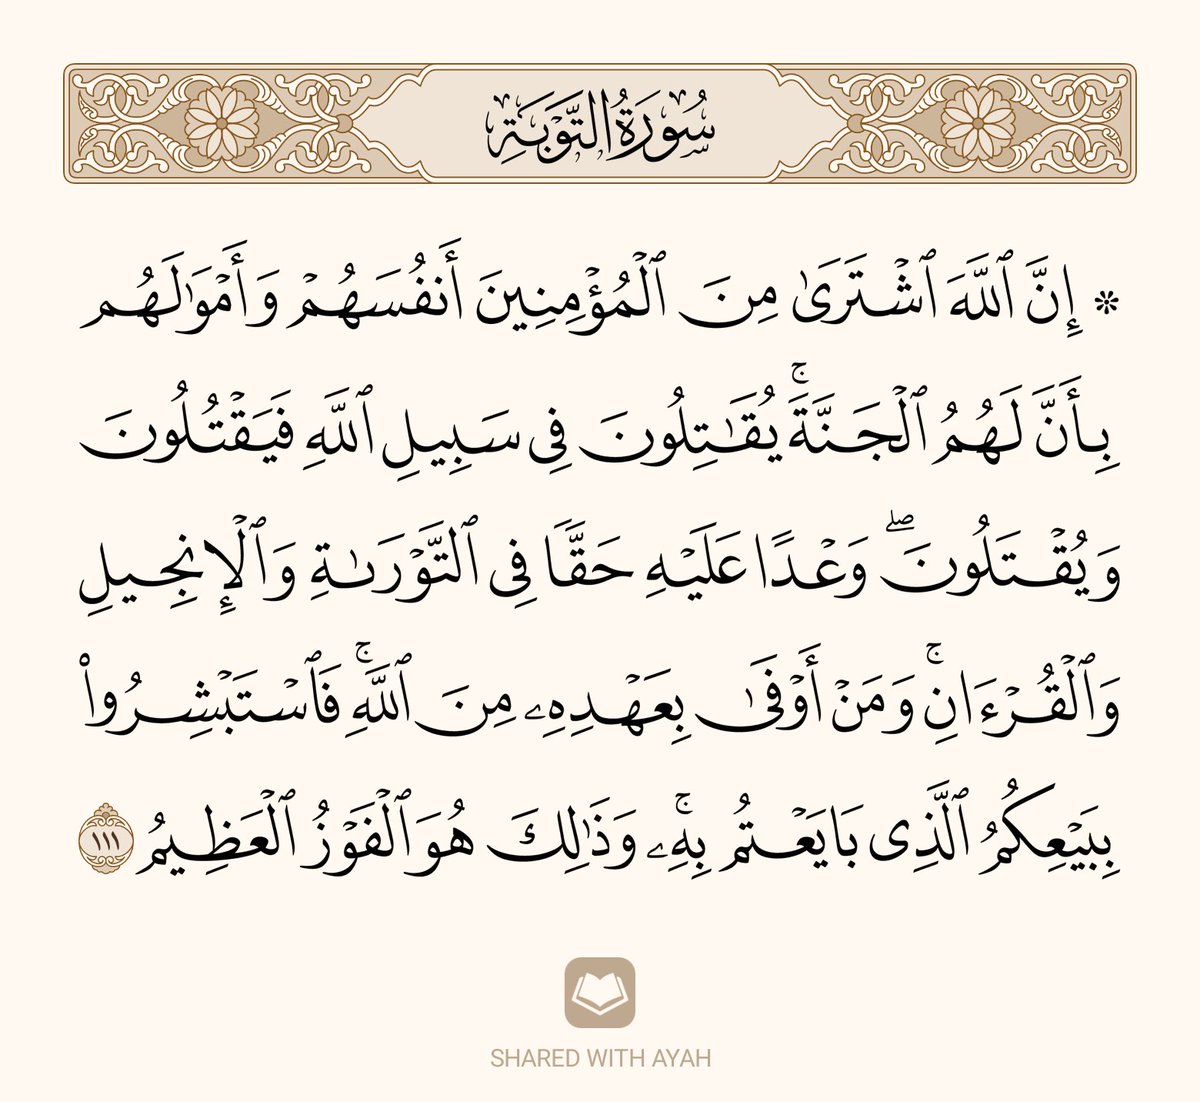 سُورَةُ التَّوۡبَةِ
۞ إِنَّ ٱللَّهَ ٱشۡتَرَىٰ مِنَ ٱلۡمُؤۡمِنِينَ أَنفُسَهُمۡ وَأَمۡوَٰلَهُم
بِأَنَّ لَهُمُ ٱلۡجَنَّةَۚ يُقَٰتِلُونَ فِي سَبِيلِ ٱللَّهِ فَيَقۡتُلُونَ
وَيُقۡتَلُونَۖ وَعۡدًا عَلَيۡهِ حَقّٗا فِي ٱلتَّوۡرَىٰةِ وَٱلۡإِنجِيلِ
وَٱلۡقُرۡءَانِۚ وَمَنۡ أَوۡفَىٰ بِعَهۡدِهِۦ مِنَ ٱللَّهِۚ فَٱسۡتَبۡشِرُواْ
بِبَيۡعِكُمُ ٱلَّذِي بَايَعۡتُم بِهِۦۚ وَذَٰلِكَ هُوَ ٱلۡفَوۡزُ ٱلۡعَظِيمُ ١١١
SHARED WITH AYAH